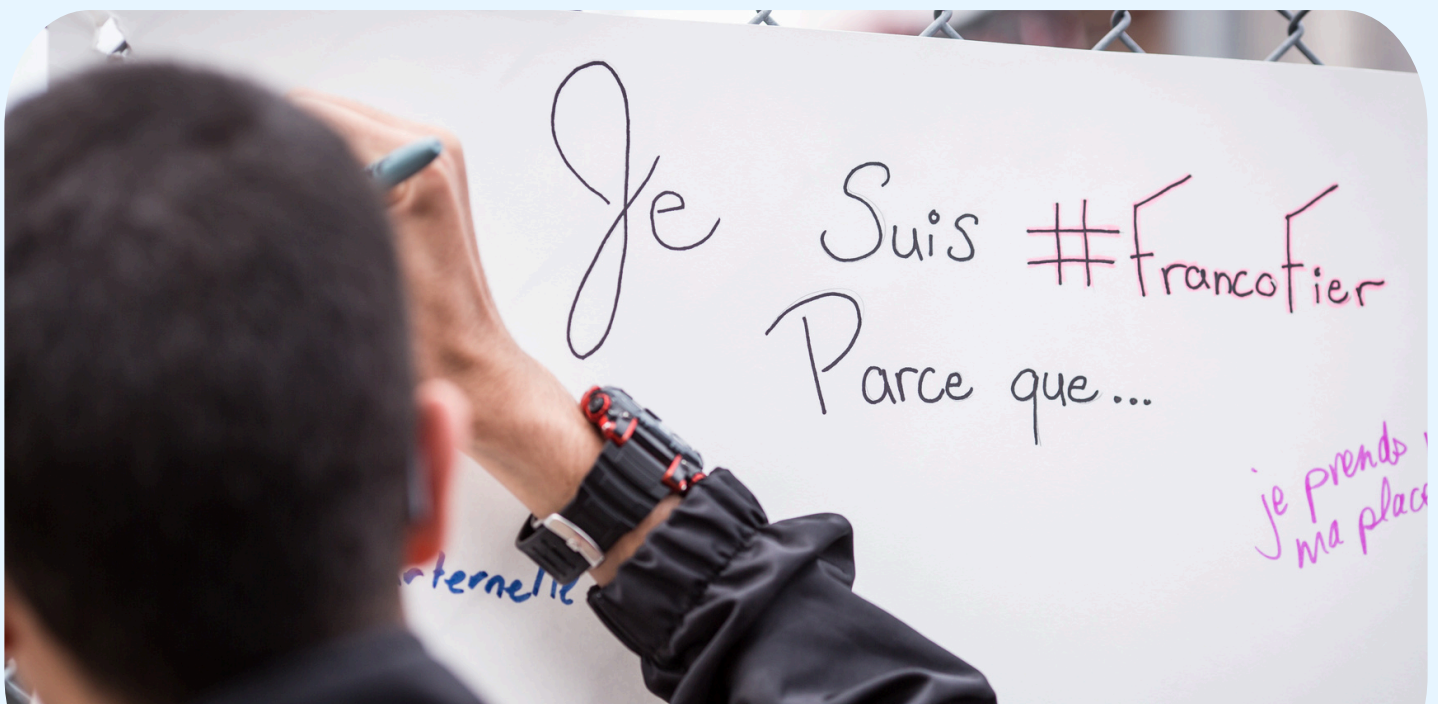 Je Suis #FrancoFier
Parce que...
je prends
ma place